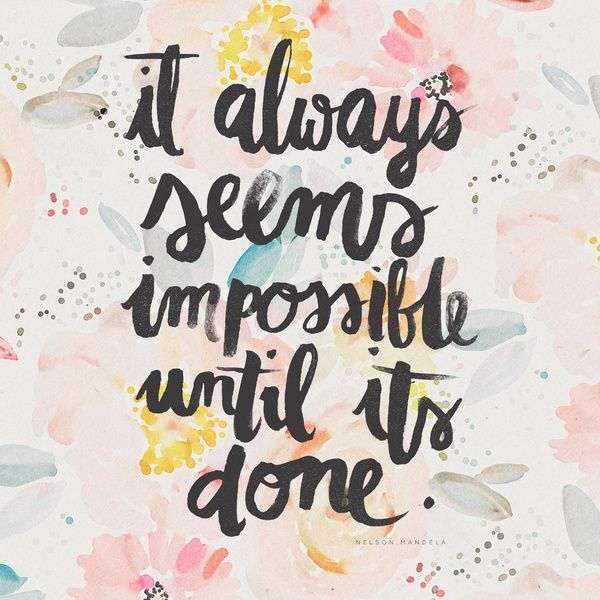 it always
seems
impossible
until its
done.
NELSON MANDELA